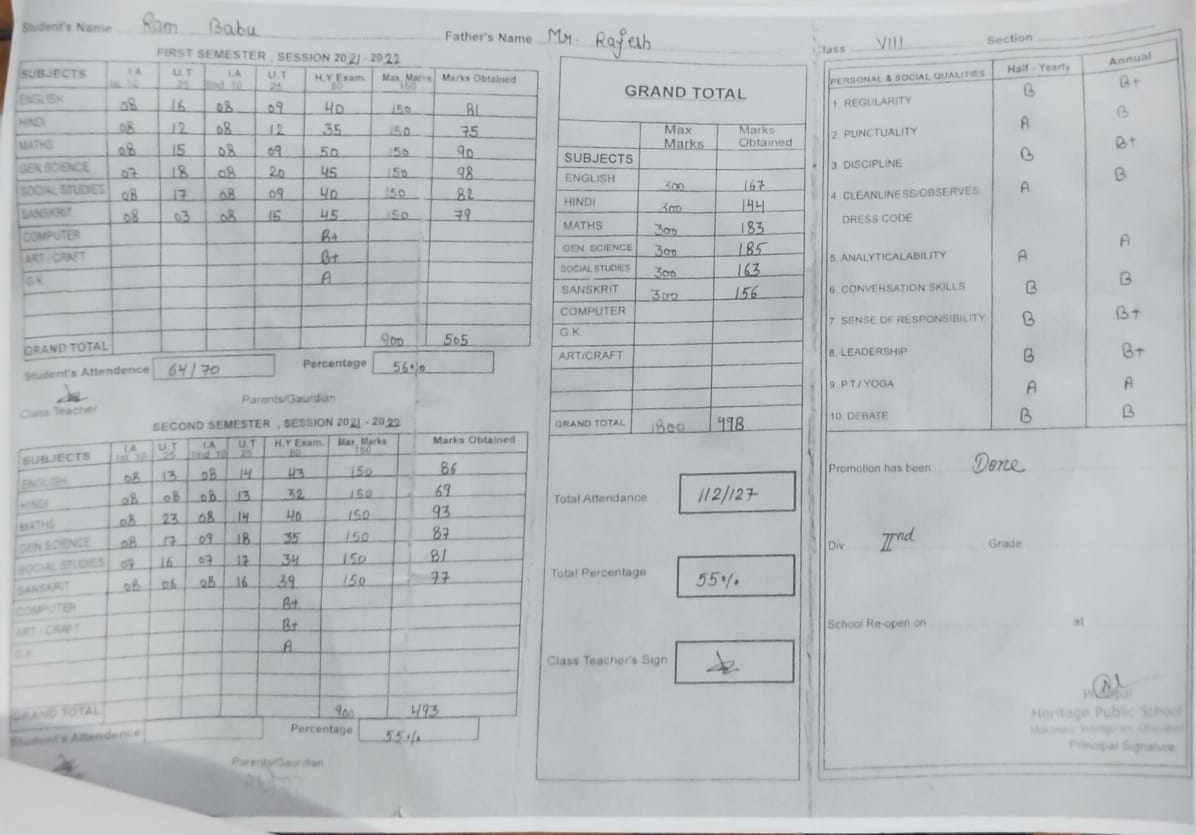 Student's Name Ram Babu Father's Name Mr. Rajesh
FIRST SEMESTER, SESSION 2021 - 2022
SUBJECTS I.A Ist 10 U.T 25 I.A IInd 10 U.T 25 H.Y Exam. 80 Max. Marks 150 Marks Obtained
ENGLISH 08 16 08 09 40 150 81
HINDI 08 12 08 12 35 150 75
MATHS 08 15 08 09 50 150 90
GEN SCIENCE 07 18 08 20 45 150 98
SOCIAL STUDIES 08 17 08 09 40 150 82
SANSKRIT 08 03 08 15 45 150 79
COMPUTER B+
ART/CRAFT B+
G.K. A
GRAND TOTAL 900 505
Student's Attendence 64/70 Percentage 56%
Class Teacher Parents/Gaurdian
SECOND SEMESTER, SESSION 2021 - 2022
SUBJECTS I.A Ist 10 U.T 25 I.A IInd 10 U.T 25 H.Y Exam. 80 Max. Marks 150 Marks Obtained
ENGLISH 08 13 08 14 43 150 86
HINDI 08 08 08 13 32 150 69
MATHS 08 23 08 14 40 150 93
GEN SCIENCE 08 17 09 18 35 150 87
SOCIAL STUDIES 07 16 07 17 34 150 81
SANSKRIT 08 06 08 16 39 150 77
COMPUTER B+
ART / CRAFT B+
G.K. A
GRAND TOTAL 900 493
Student's Attendence Percentage 55%
Parents/Gaurdian
GRAND TOTAL
Max Marks Marks Obtained
SUBJECTS
ENGLISH 300 167
HINDI 300 144
MATHS 300 183
GEN. SCIENCE 300 185
SOCIAL STUDIES 300 163
SANSKRIT 300 156
COMPUTER
G.K.
ART/CRAFT
GRAND TOTAL 1800 998
Total Attendance 112/127
Total Percentage 55%
Class Teacher's Sign
Class VIII Section
PERSONAL & SOCIAL QUALITIES Half - Yearly Annual
1. REGULARITY B B+
2. PUNCTUALITY A B
3. DISCIPLINE B B+
4. CLEANLINESS/OBSERVES A B
DRESS CODE
5. ANALYTICALABILITY A A
6. CONVERSATION SKILLS B B
7. SENSE OF RESPONSIBILITY B B+
8. LEADERSHIP B B+
9. P.T./ YOGA A A
10. DEBATE B B
Promotion has been Done
Div IInd Grade
School Re-open on at
Principal
Heritage Public School
Principal Signature